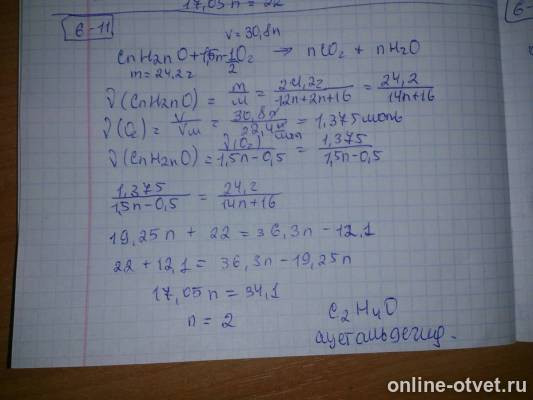 17,05n = 22
6-11
V = 30,8л
CnH2nO + 1,5n-1/2 O2 → nCO2 + nH2O
m = 24,2г
ν(CnH2nO) = m/M = 24,2г/12n+2n+16 = 24,2/14n+16
ν(O2) = V/Vм = 30,8л/22,4л/моль = 1,375 моль
ν(CnH2nO) = ν(O2)/1,5n-0,5 = 1,375/1,5n-0,5
1,375/1,5n-0,5 = 24,2/14n+16
19,25n + 22 = 36,3n - 12,1
22 + 12,1 = 36,3n - 19,25n
17,05n = 34,1
n = 2
C2H4O
ацетальдегид.
online-otvet.ru